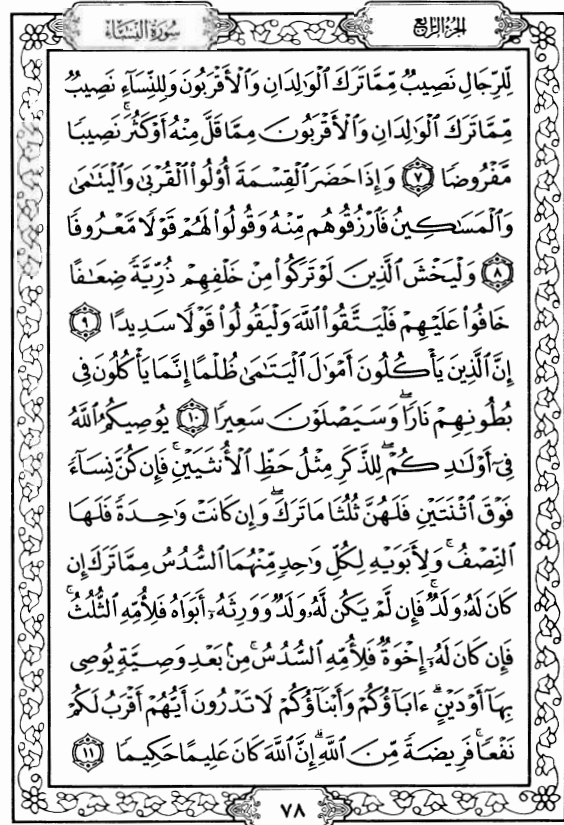 سُورَةُ النِّسَاءِ
الجُزْءُ الرَّابِعُ
لِّلرِّجَالِ نَصِيبٌ مِّمَّا تَرَكَ ٱلْوَٰلِدَانِ وَٱلْأَقْرَبُونَ وَلِلنِّسَآءِ نَصِيبٌ
مِّمَّا تَرَكَ ٱلْوَٰلِدَانِ وَٱلْأَقْرَبُونَ مِمَّا قَلَّ مِنْهُ أَوْ كَثُرَ ۚ نَصِيبًا
مَّفْرُوضًا ٧ وَإِذَا حَضَرَ ٱلْقِسْمَةَ أُو۟لُوا۟ ٱلْقُرْبَىٰ وَٱلْيَتَٰمَىٰ
وَٱلْمَسَٰكِينُ فَٱرْزُقُوهُم مِّنْهُ وَقُولُوا۟ لَهُمْ قَوْلًا مَّعْرُوفًا
٨ وَلْيَخْشَ ٱلَّذِينَ لَوْ تَرَكُوا۟ مِنْ خَلْفِهِمْ ذُرِّيَّةً ضِعَٰفًا
خَافُوا۟ عَلَيْهِمْ فَلْيَتَّقُوا۟ ٱللَّهَ وَلْيَقُولُوا۟ قَوْلًا سَدِيدًا ٩
إِنَّ ٱلَّذِينَ يَأْكُلُونَ أَمْوَٰلَ ٱلْيَتَٰمَىٰ ظُلْمًا إِنَّمَا يَأْكُلُونَ فِى
بُطُونِهِمْ نَارًا ۖ وَسَيَصْلَوْنَ سَعِيرًا ١٠ يُوصِيكُمُ ٱللَّهُ
فِىٓ أَوْلَٰدِكُمْ ۖ لِلذَّكَرِ مِثْلُ حَظِّ ٱلْأُنثَيَيْنِ ۚ فَإِن كُنَّ نِسَآءً
فَوْقَ ٱثْنَتَيْنِ فَلَهُنَّ ثُلُثَا مَا تَرَكَ ۖ وَإِن كَانَتْ وَٰحِدَةً فَلَهَا
ٱلنِّصْفُ ۚ وَلِأَبَوَيْهِ لِكُلِّ وَٰحِدٍ مِّنْهُمَا ٱلسُّدُسُ مِمَّا تَرَكَ إِن
كَانَ لَهُۥ وَلَدٌ ۚ فَإِن لَّمْ يَكُن لَّهُۥ وَلَدٌ وَوَرِثَهُۥٓ أَبَوَاهُ فَلِأُمِّهِ ٱلثُّلُثُ ۚ
فَإِن كَانَ لَهُۥٓ إِخْوَةٌ فَلِأُمِّهِ ٱلسُّدُسُ ۚ مِنۢ بَعْدِ وَصِيَّةٍ يُوصِى
بِهَآ أَوْ دَيْنٍ ۗ ءَابَآؤُكُمْ وَأَبْنَآؤُكُمْ لَا تَدْرُونَ أَيُّهُمْ أَقْرَبُ لَكُمْ
نَفْعًا ۚ فَرِيضَةً مِّنَ ٱللَّهِ ۗ إِنَّ ٱللَّهَ كَانَ عَلِيمًا حَكِيمًا ١١
٧٨